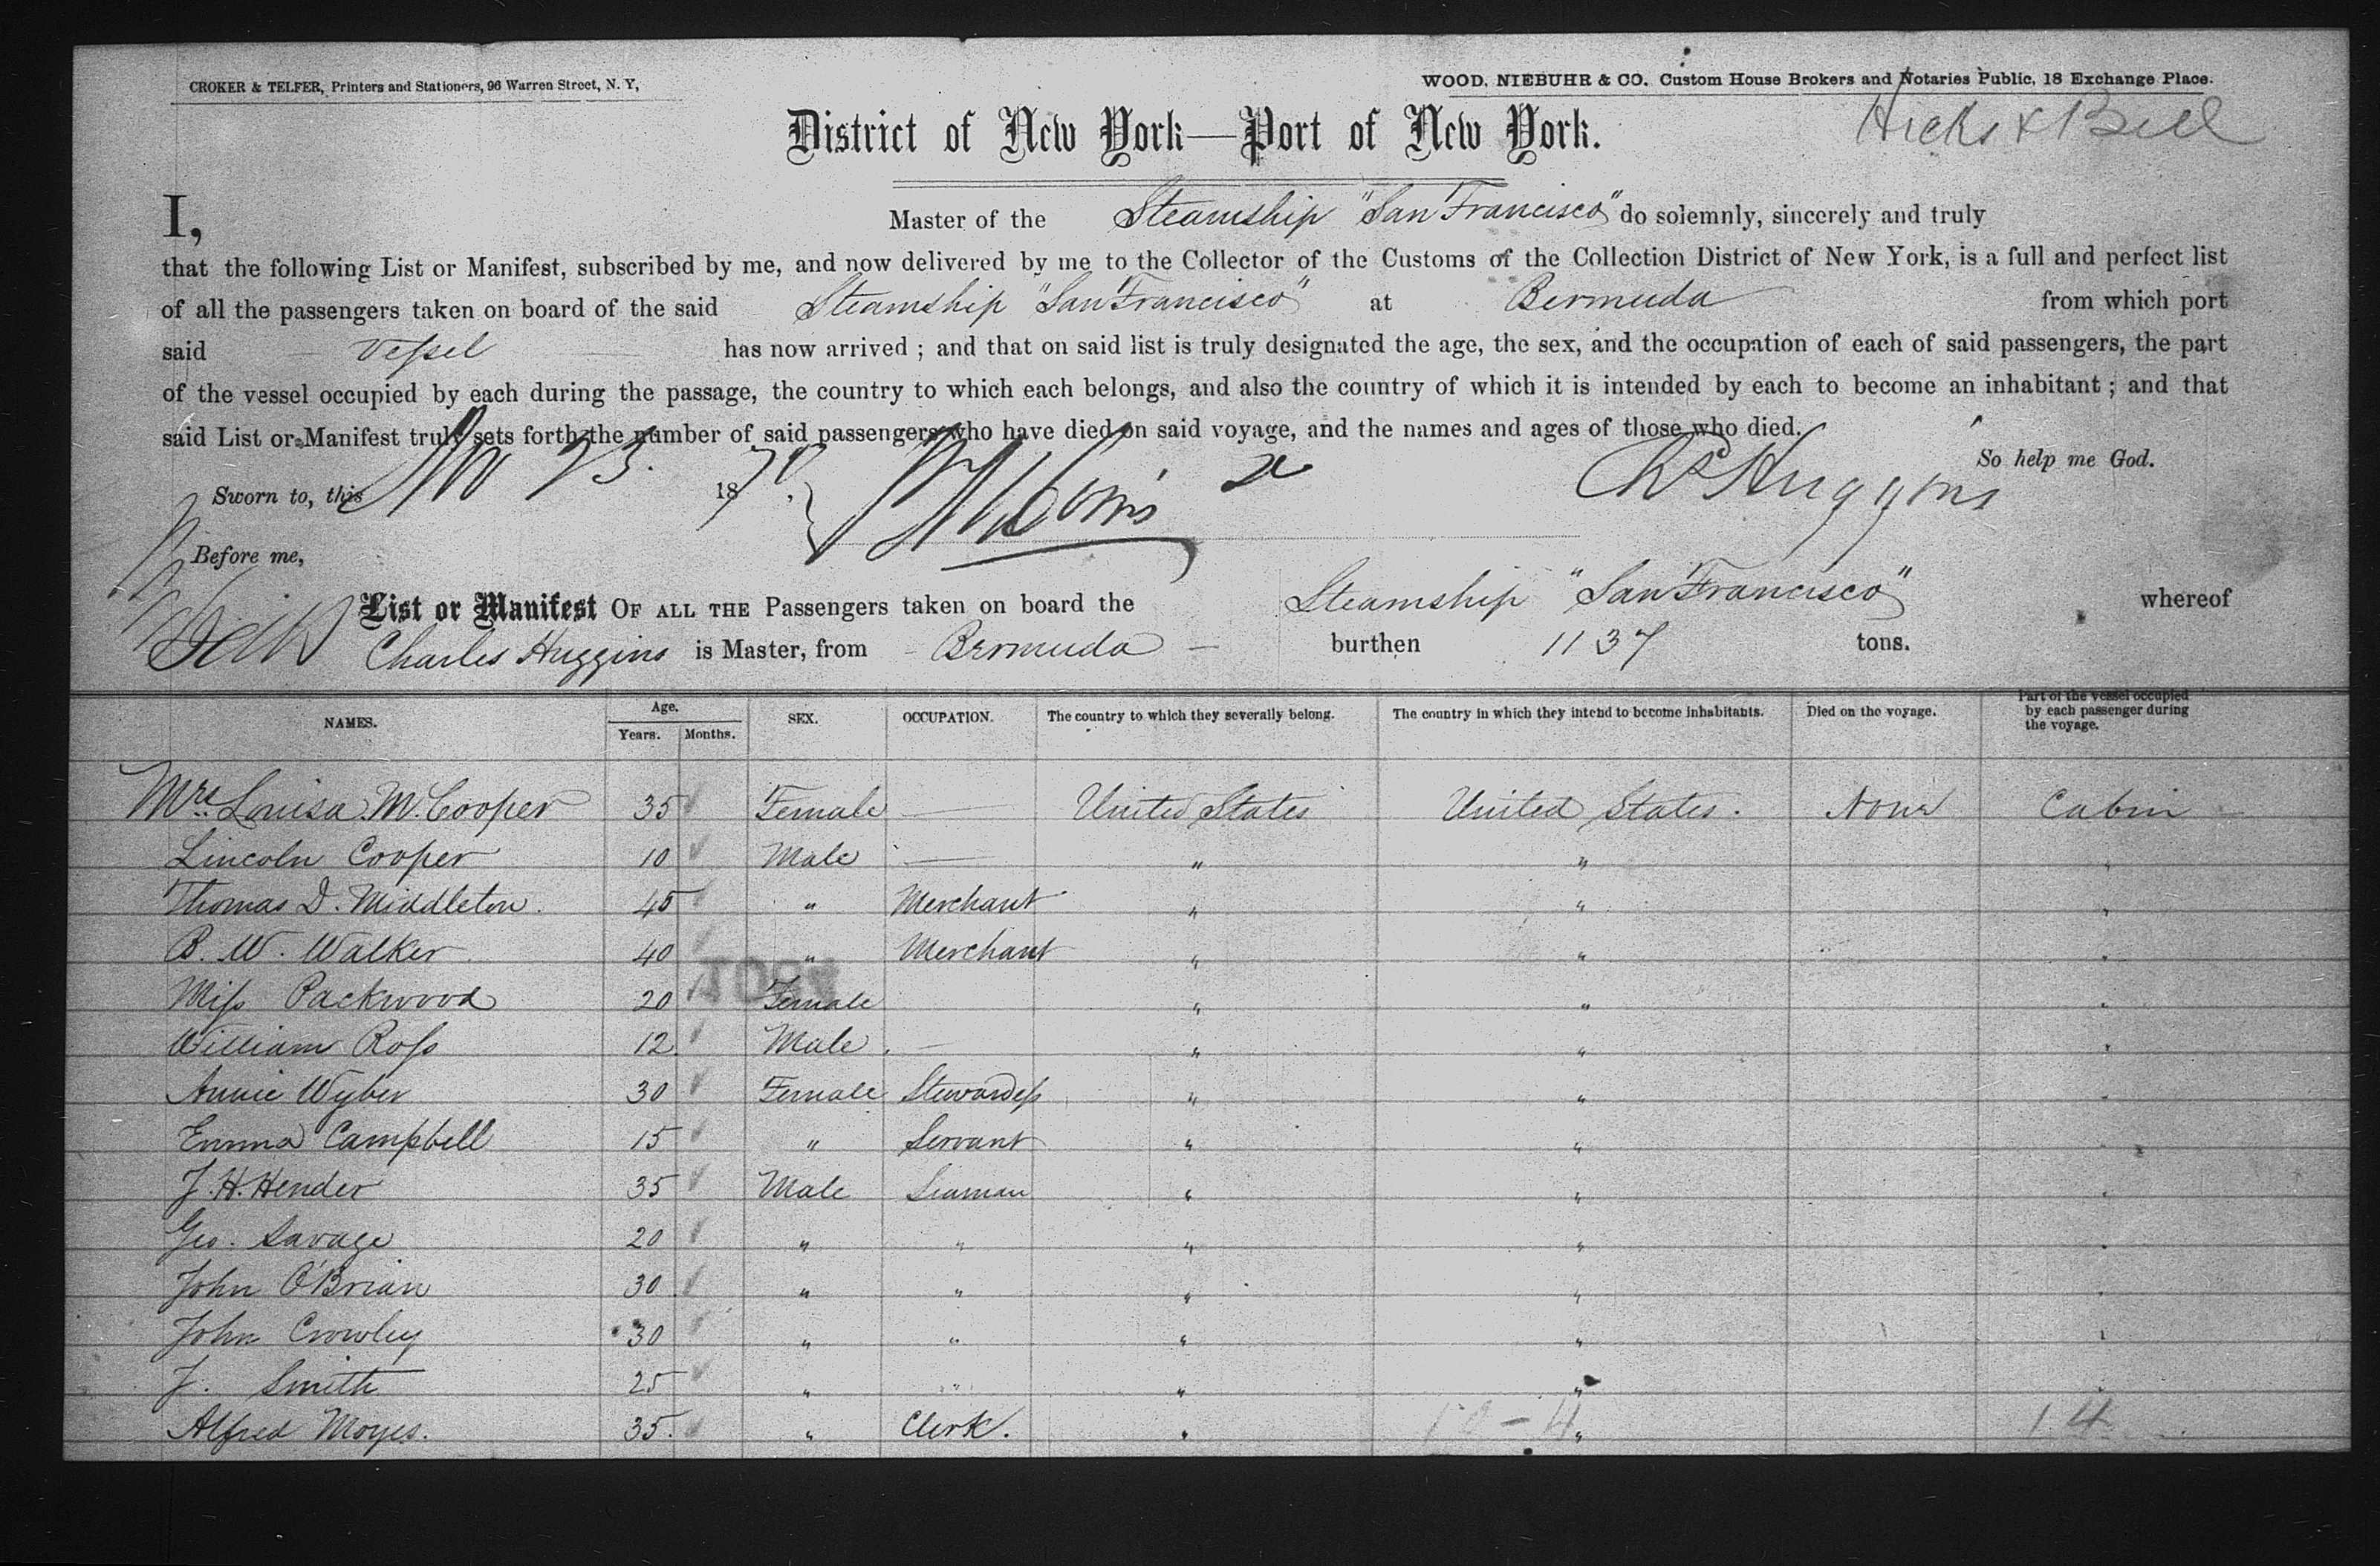 CROKER & TELFER, Printers and Stationers, 96 Warren Street, N. Y,
WOOD, NIEBUHR & CO. Custom House Brokers and Notaries Public, 18 Exchange Place.
Hicks & Bell
District of New York—Port of New York.
I, Master of the Steamship "San Francisco" do solemnly, sincerely and truly
that the following List or Manifest, subscribed by me, and now delivered by me to the Collector of the Customs of the Collection District of New York, is a full and perfect list
of all the passengers taken on board of the said Steamship "San Francisco" at Bermuda from which port
said Vessel has now arrived ; and that on said list is truly designated the age, the sex, and the occupation of each of said passengers, the part
of the vessel occupied by each during the passage, the country to which each belongs, and also the country of which it is intended by each to become an inhabitant ; and that
said List or Manifest truly sets forth the number of said passengers who have died on said voyage, and the names and ages of those who died.
So help me God.
Sworn to, this 23. 18
Chs Huggins
Before me,
List or Manifest OF ALL THE Passengers taken on board the Steamship "San Francisco" whereof
Charles Huggins is Master, from - Bermuda - burthen 1137 tons.
NAMES. Age. Years. Months. SEX. OCCUPATION. The country to which they severally belong. The country in which they intend to become inhabitants. Died on the voyage. Part of the vessel occupied by each passenger during the voyage.
Mrs Louisa M. Cooper 35 Female — United States United States. None Cabin
Lincoln Cooper 10 Male — " " "
Thomas D. Middleton. 45 " Merchant " " "
B. W. Walker 40 " Merchant " " "
Miss Packwood 20 Female " " "
William Ross 12 Male — " " "
Annie Wyber 30 Female Stewardess " " "
Emma Campbell 15 " Servant " " "
J. H. Hender 35 Male Seaman " " "
Geo. Savage 20 " " " " "
John O'Brian 30 " " " " "
John Crowley 30 " " " " "
J. Smith 25 " " " " "
Alfred Moyes. 35. " Clerk. " " 14